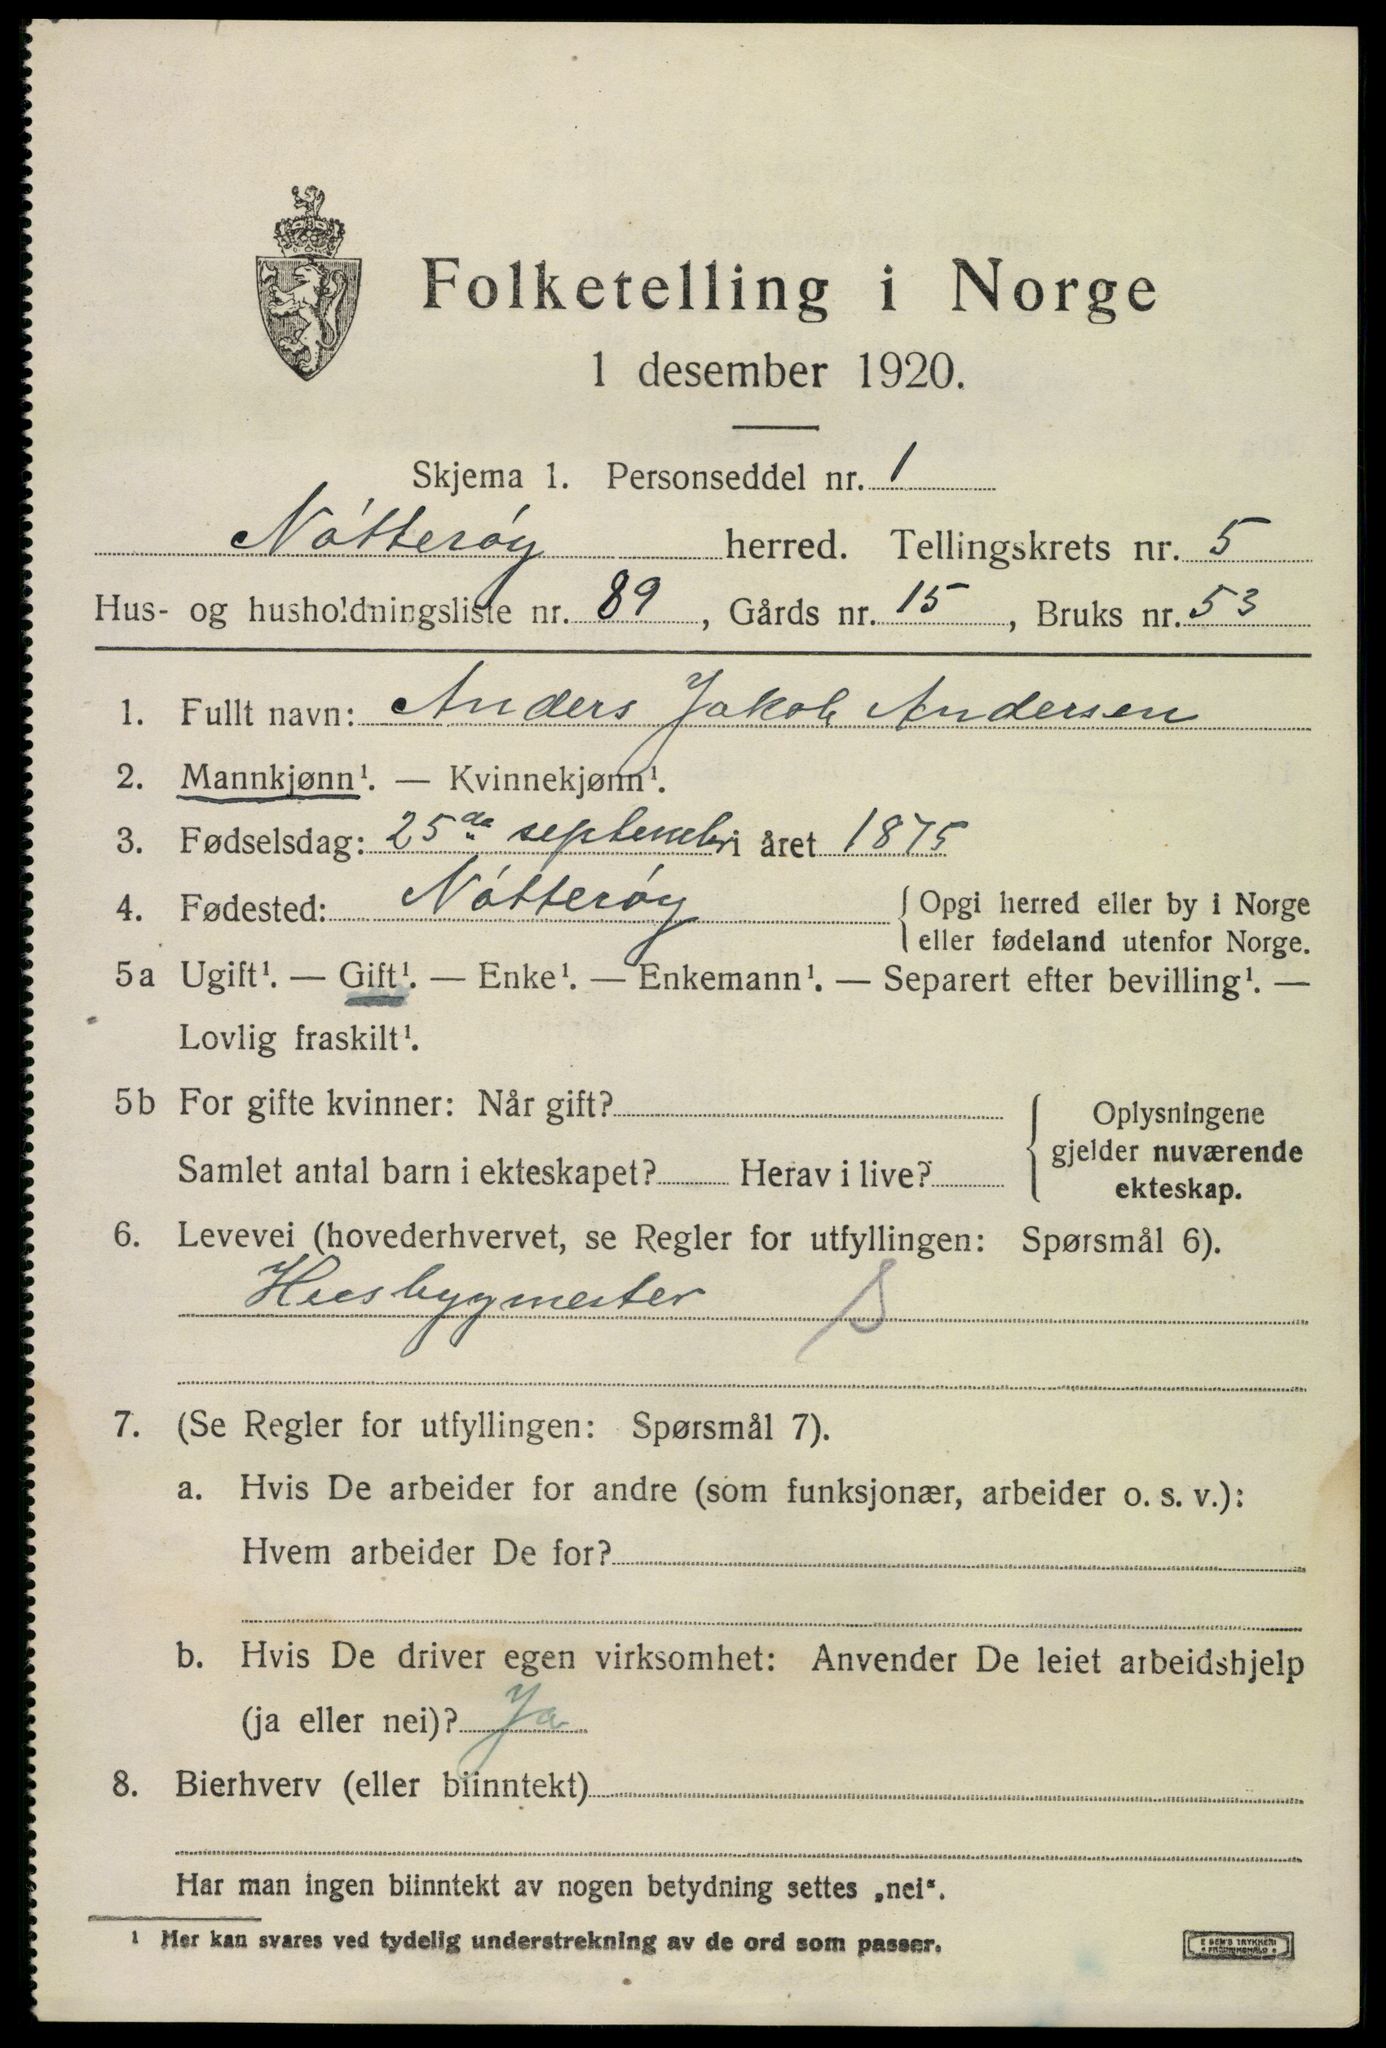 Folketelling i Norge
1 desember 1920.
Skjema 1. Personseddel nr. 1
Nótterøy herred. Tellingskrets nr. 5
Hus- og husholdningsliste nr. 89, Gårds nr. 15, Bruks nr. 53
1. Fullt navn: Anders Jakob Andersen
2. Mannkjønn¹. — Kvinnekjønn¹.
3. Fødselsdag: 25de septembr i året 1875
4. Fødested: Nótterøy { Opgi herred eller by i Norge
eller fødeland utenfor Norge.
5a Ugift¹. — Gift¹. — Enke¹. — Enkemann¹. — Separert efter bevilling¹. —
Lovlig fraskilt¹.
5b For gifte kvinner: Når gift? { Oplysningene
gjelder nuværende
Samlet antal barn i ekteskapet? Herav i live?
ekteskap.
6. Levevei (hovederhvervet, se Regler for utfyllingen: Spørsmål 6).
Husbygmester S
7. (Se Regler for utfyllingen: Spørsmål 7).
a. Hvis De arbeider for andre (som funksjonær, arbeider o. s. v.):
Hvem arbeider De for?
b. Hvis De driver egen virksomhet: Anvender De leiet arbeidshjelp
(ja eller nei)? Ja
8. Bierhverv (eller biinntekt)
Har man ingen biinntekt av nogen betydning settes „nei".
¹ Her kan svares ved tydelig understrekning av de ord som passer.